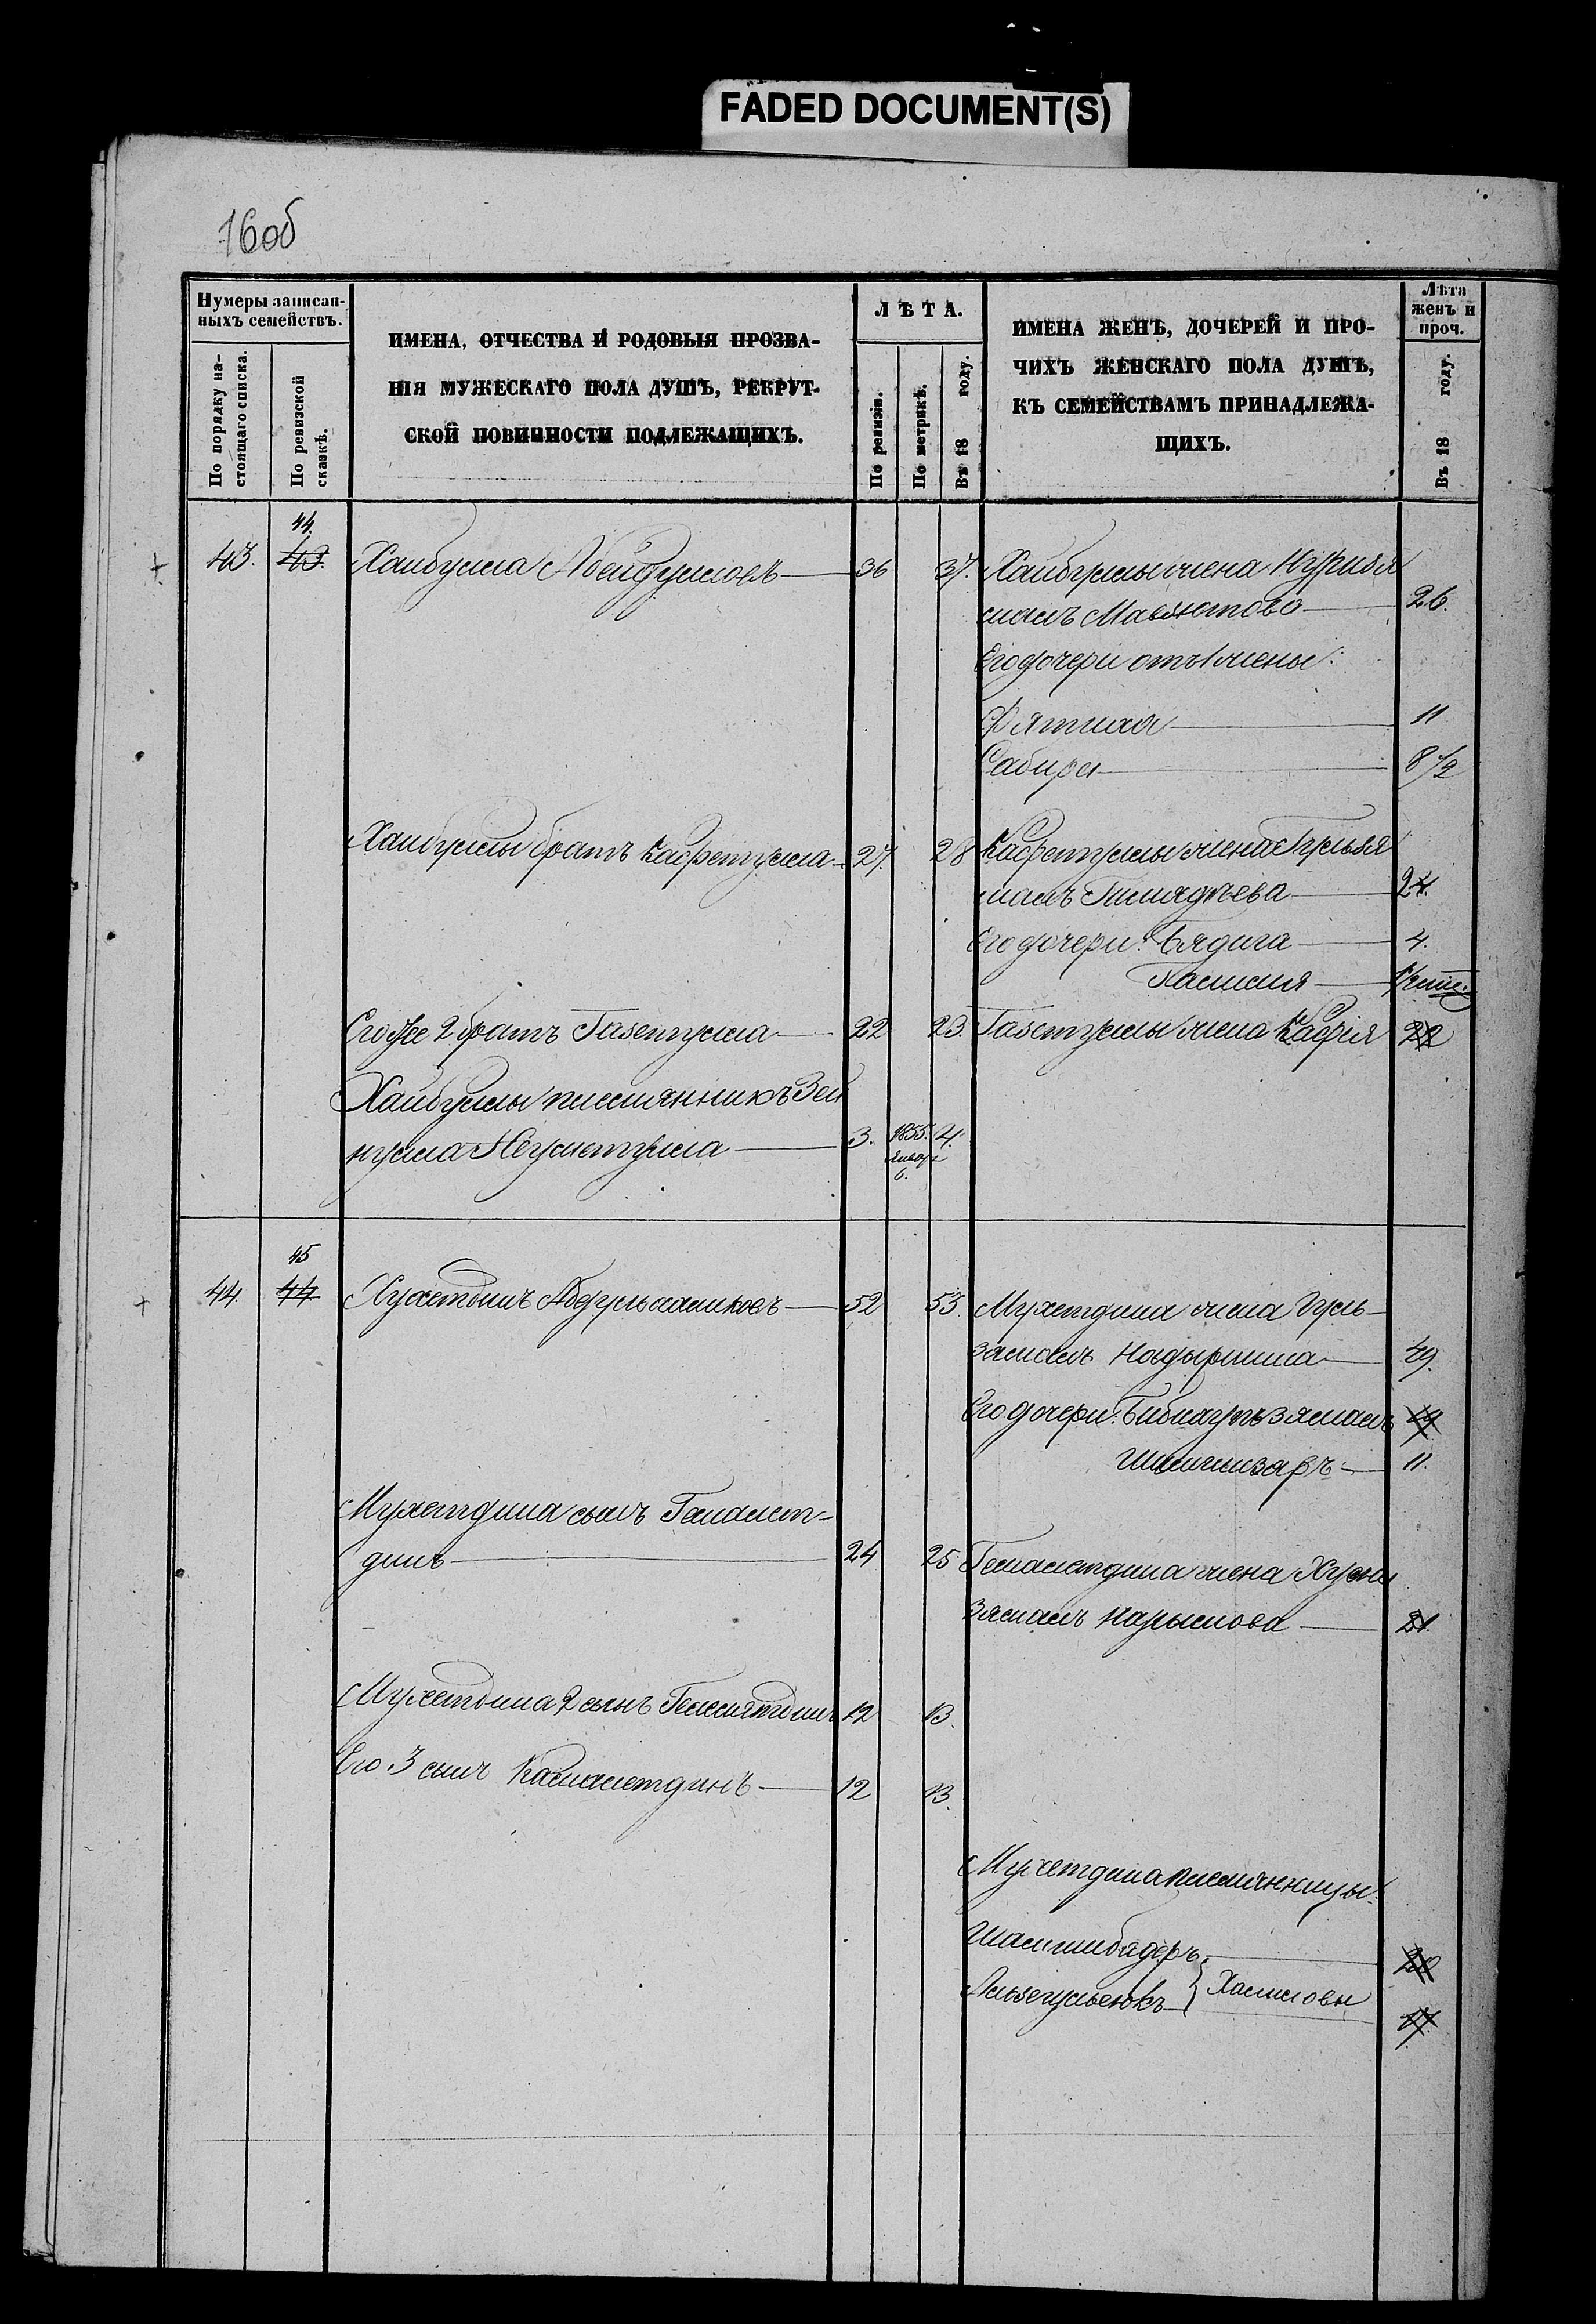 FADED DOCUMENT(S)
16об
Нумеры записан-
ныхъ семействъ.
По порядку на-
стоящаго списка.
По ревизской
сказкѣ.
ИМЕНА, ОТЧЕСТВА И РОДОВЫЯ ПРОЗВА-
НІЯ МУЖЕСКАГО ПОЛА ДУШЪ, РЕКРУТ-
СКОЙ ПОВИННОСТИ ПОДЛЕЖАЩИХЪ.
ЛѢТА.
По ревизіи.
По метрикѣ.
Въ 18 году.
ИМЕНА ЖЕНЪ, ДОЧЕРЕЙ И ПРО-
ЧИХЪ ЖЕНСКАГО ПОЛА ДУШЪ,
КЪ СЕМЕЙСТВАМЪ ПРИНАДЛЕЖА-
ЩИХЪ.
Лѣта
женъ и
проч.
Въ 18 году.
44.
43. 43. Хайбулла Абейдулловъ 36 37. Хайбуллы жена Нуризя
малъ Мавлютова 26.
Его дочери отъ 1 жены:
Фятима 11
Сабира 8 1/2
Хайбуллы братъ Кафетулла 27. 28 Кафетуллы жена Гульзя
малъ Гимадѣева 24.
Его дочери: Бядига 4.
Камиля
Его же 2 братъ Газетулла 22 23. Газетуллы жена Кафія 22
Хайбуллы племянникъ Зей
нулла Негметулла 3. 1855. 4.
Январ
6.
45
44. 44 Мухетдинъ Абдулхаликовъ 52 53. Мухетдина жена Гуль-
замалъ Надыршина 49.
Его дочери: Бибигульзямалъ 19
Шамшизаръ 11.
Мухетдина сынъ Гамалет-
динъ 24 25 Гемалетдина жена Хусни
зямалъ Карымова 21.
Мухетдина 2 сынъ Гелемятдинъ 12 13.
Его 3 сынъ Камалетдинъ 12 13.
Мухетдина племянницы:
Шамшибадеръ 20
Халиловы
17.